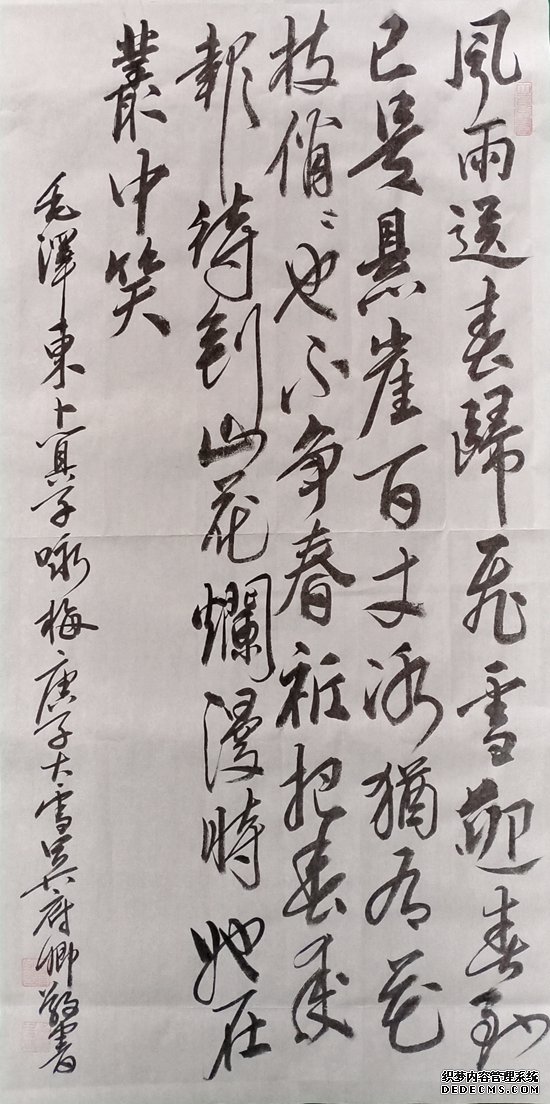 風雨送春歸飛雪迎春到
已是悬崖百丈冰猶有花
枝俏〻也不争春祇把春來
報待到山花爛漫時她在
叢中笑
毛澤東卜算子咏梅庚子大雪吴府卿敬書
织梦内容管理系统
DEDECMS.COM